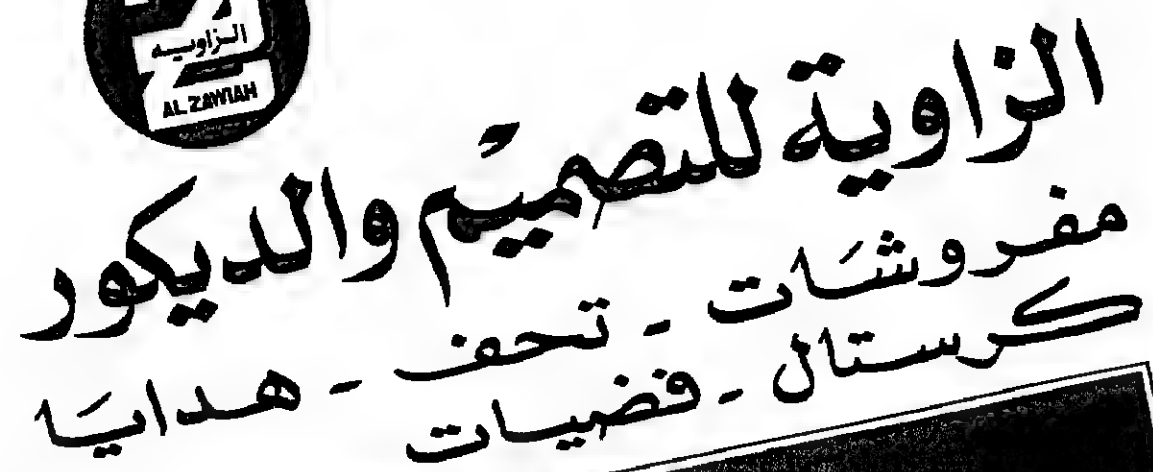 الزاويه
AL ZAWIAH
الزاوية للتصميم والديكور
مفروشات - تحف - هدايا
كرستال - فضيات